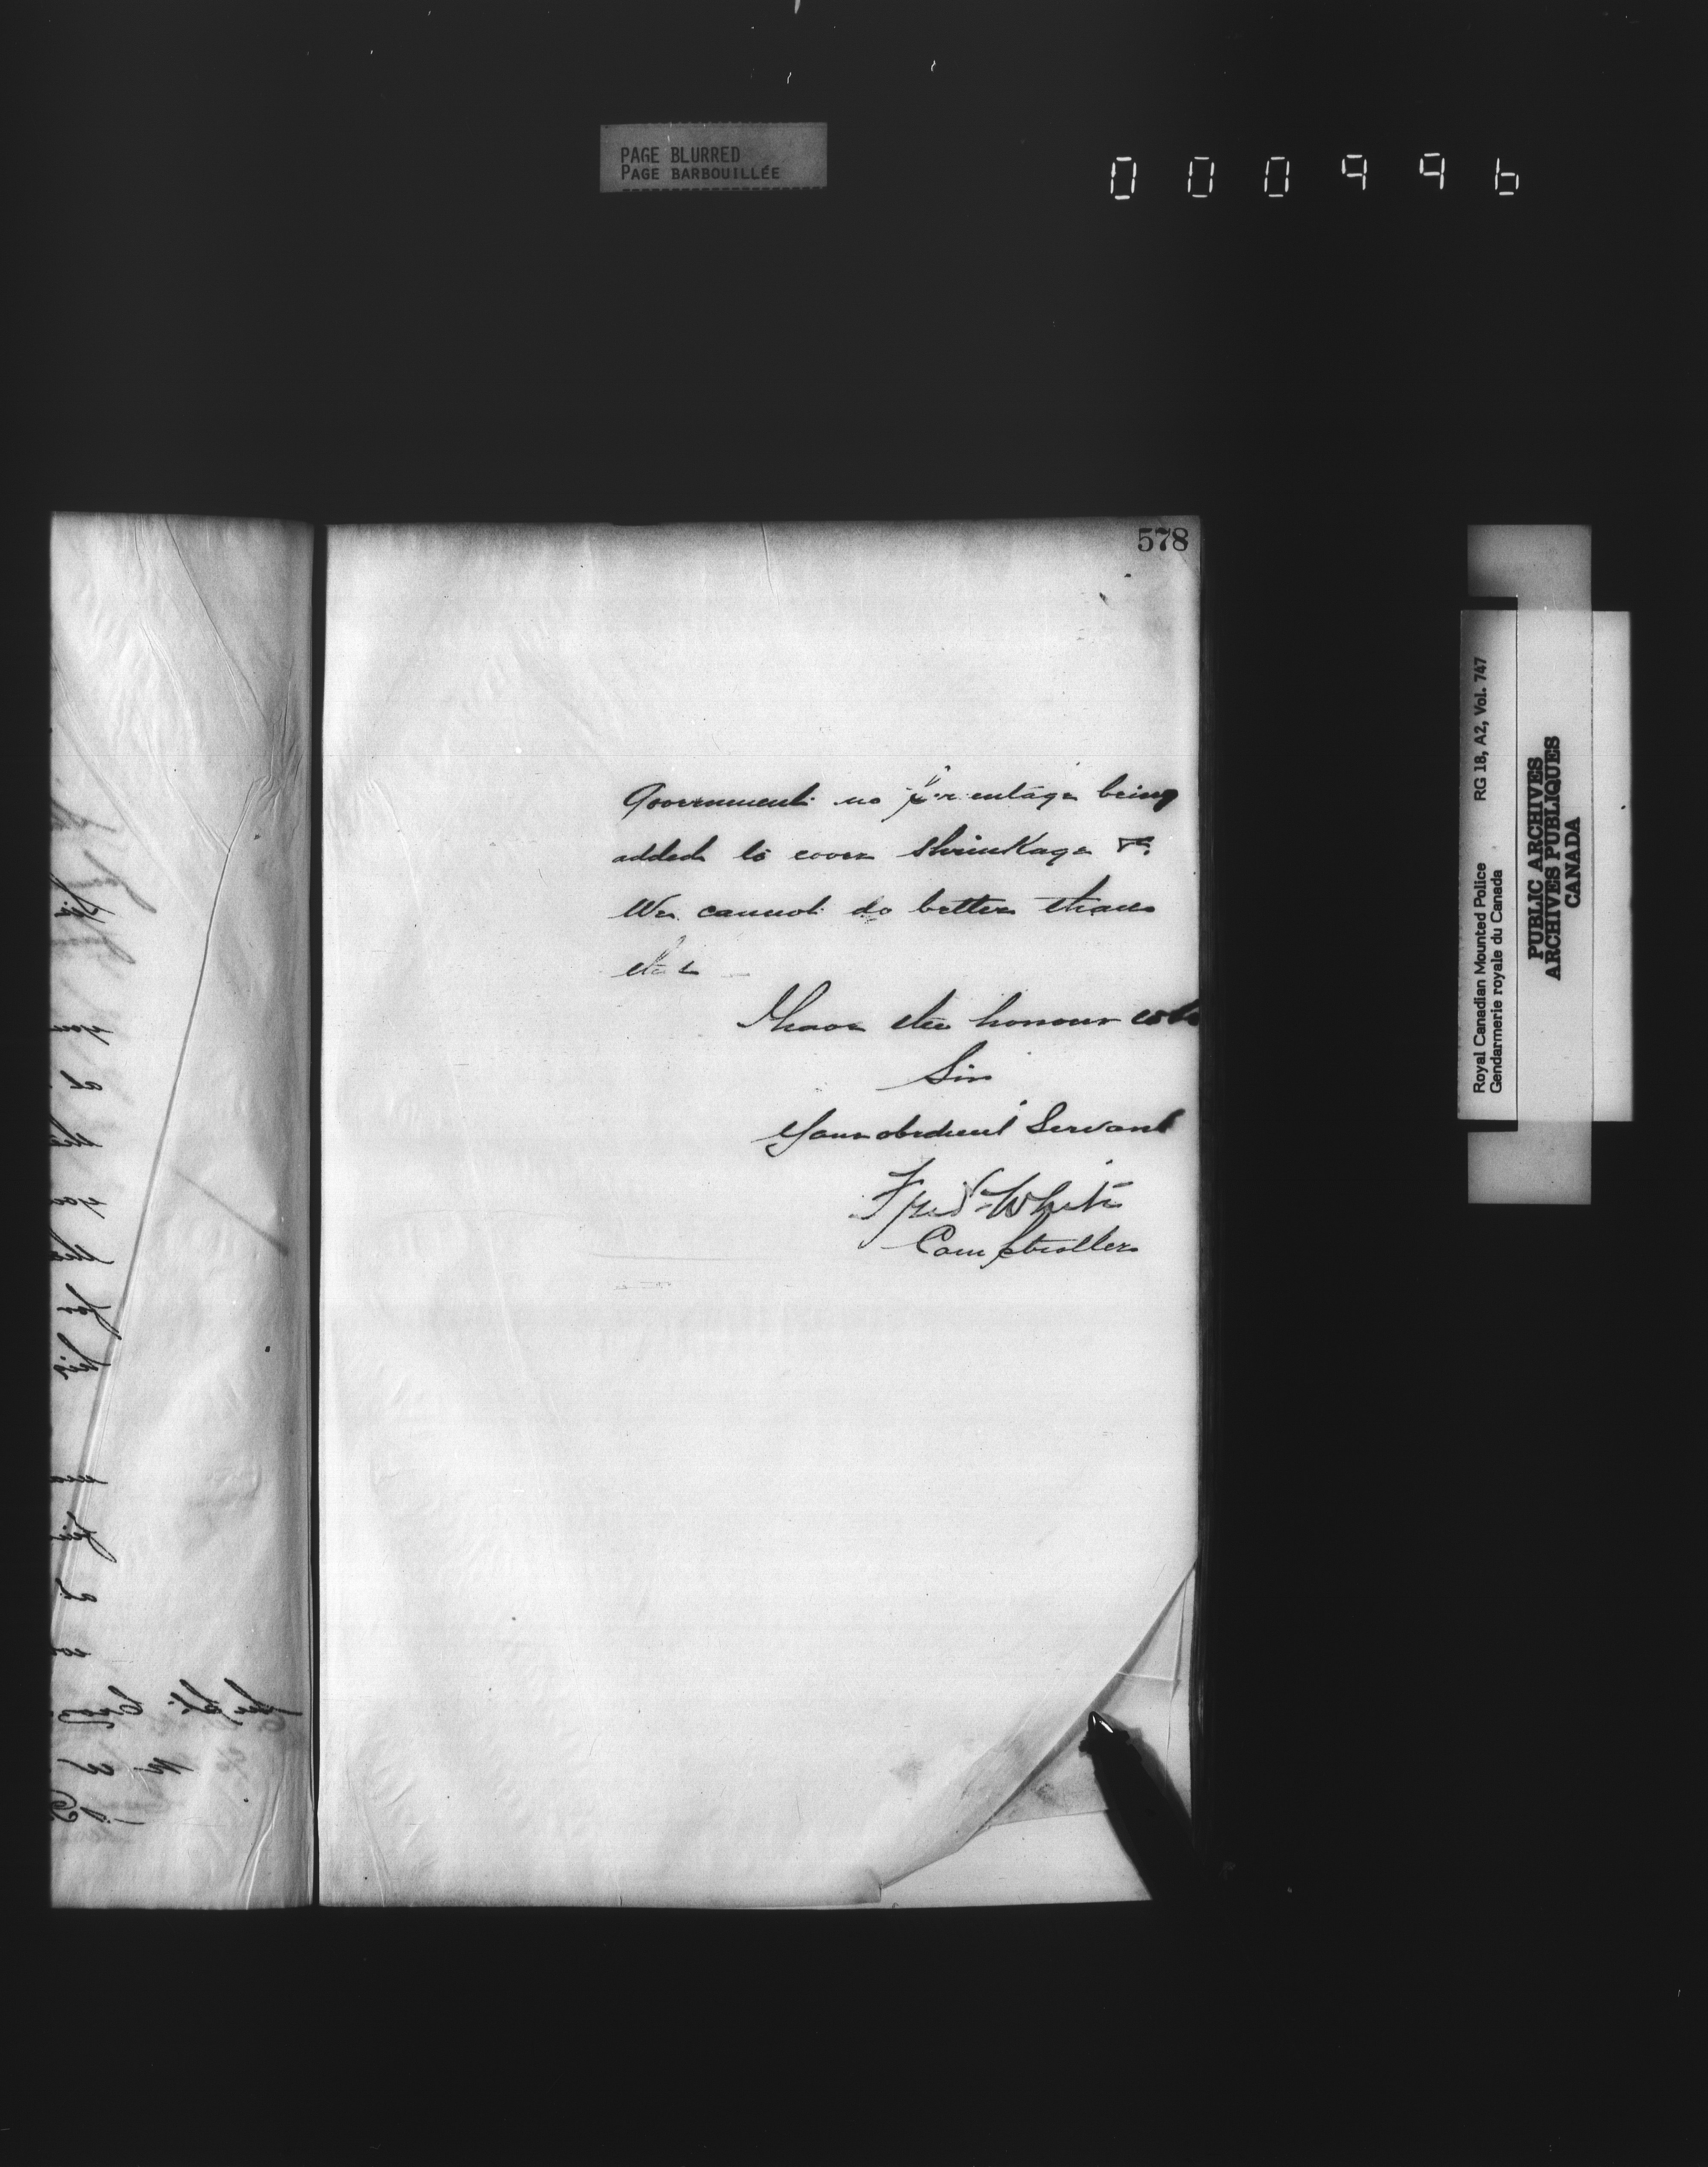 PAGE BLURRED
PAGE BARBOUILLÉE
000996
578
Government no percentage being
added to cover shrinkage &c.
We cannot do better than
that
I have the honour to be
Sir
Your obedient Servant
Fred White
Comptroller
Royal Canadian Mounted Police
Gendarmerie royale du Canada
RG 18, A2, Vol. 747
PUBLIC ARCHIVES
ARCHIVES PUBLIQUES
CANADA